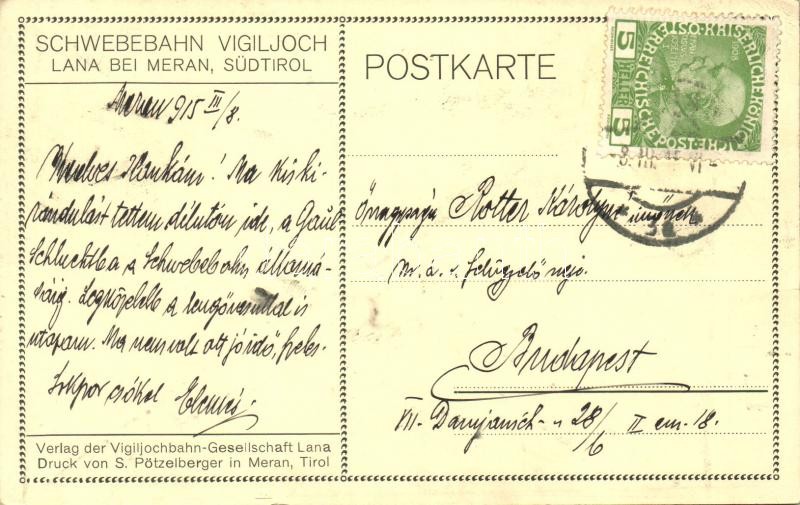 SCHWEBEBAHN VIGILJOCH
LANA BEI MERAN, SÜDTIROL
Meran 915 III/8.
Kedves Ilonkám! Ma kis ki-
rándulást tettem délután ide, a Gaul
Schluchtba a Schwebebahn állomá-
sáig. Legközelebb a
utazom. Ma nem volt ott jó idő,
Sokszor csókol Elemér
Verlag der Vigiljochbahn-Gesellschaft Lana
Druck von S. Pötzelberger in Meran, Tirol
POSTKARTE
5 HELLER 5
KAISERLICHE KÖNIGLICHE ÖSTERREICHISCHE POST
1908
Önagysága Rotter Károlyné úrnőnek
m. á. v. felügyelő neje.
Budapest
VII. Damjanich u 28/6 II em. 18.